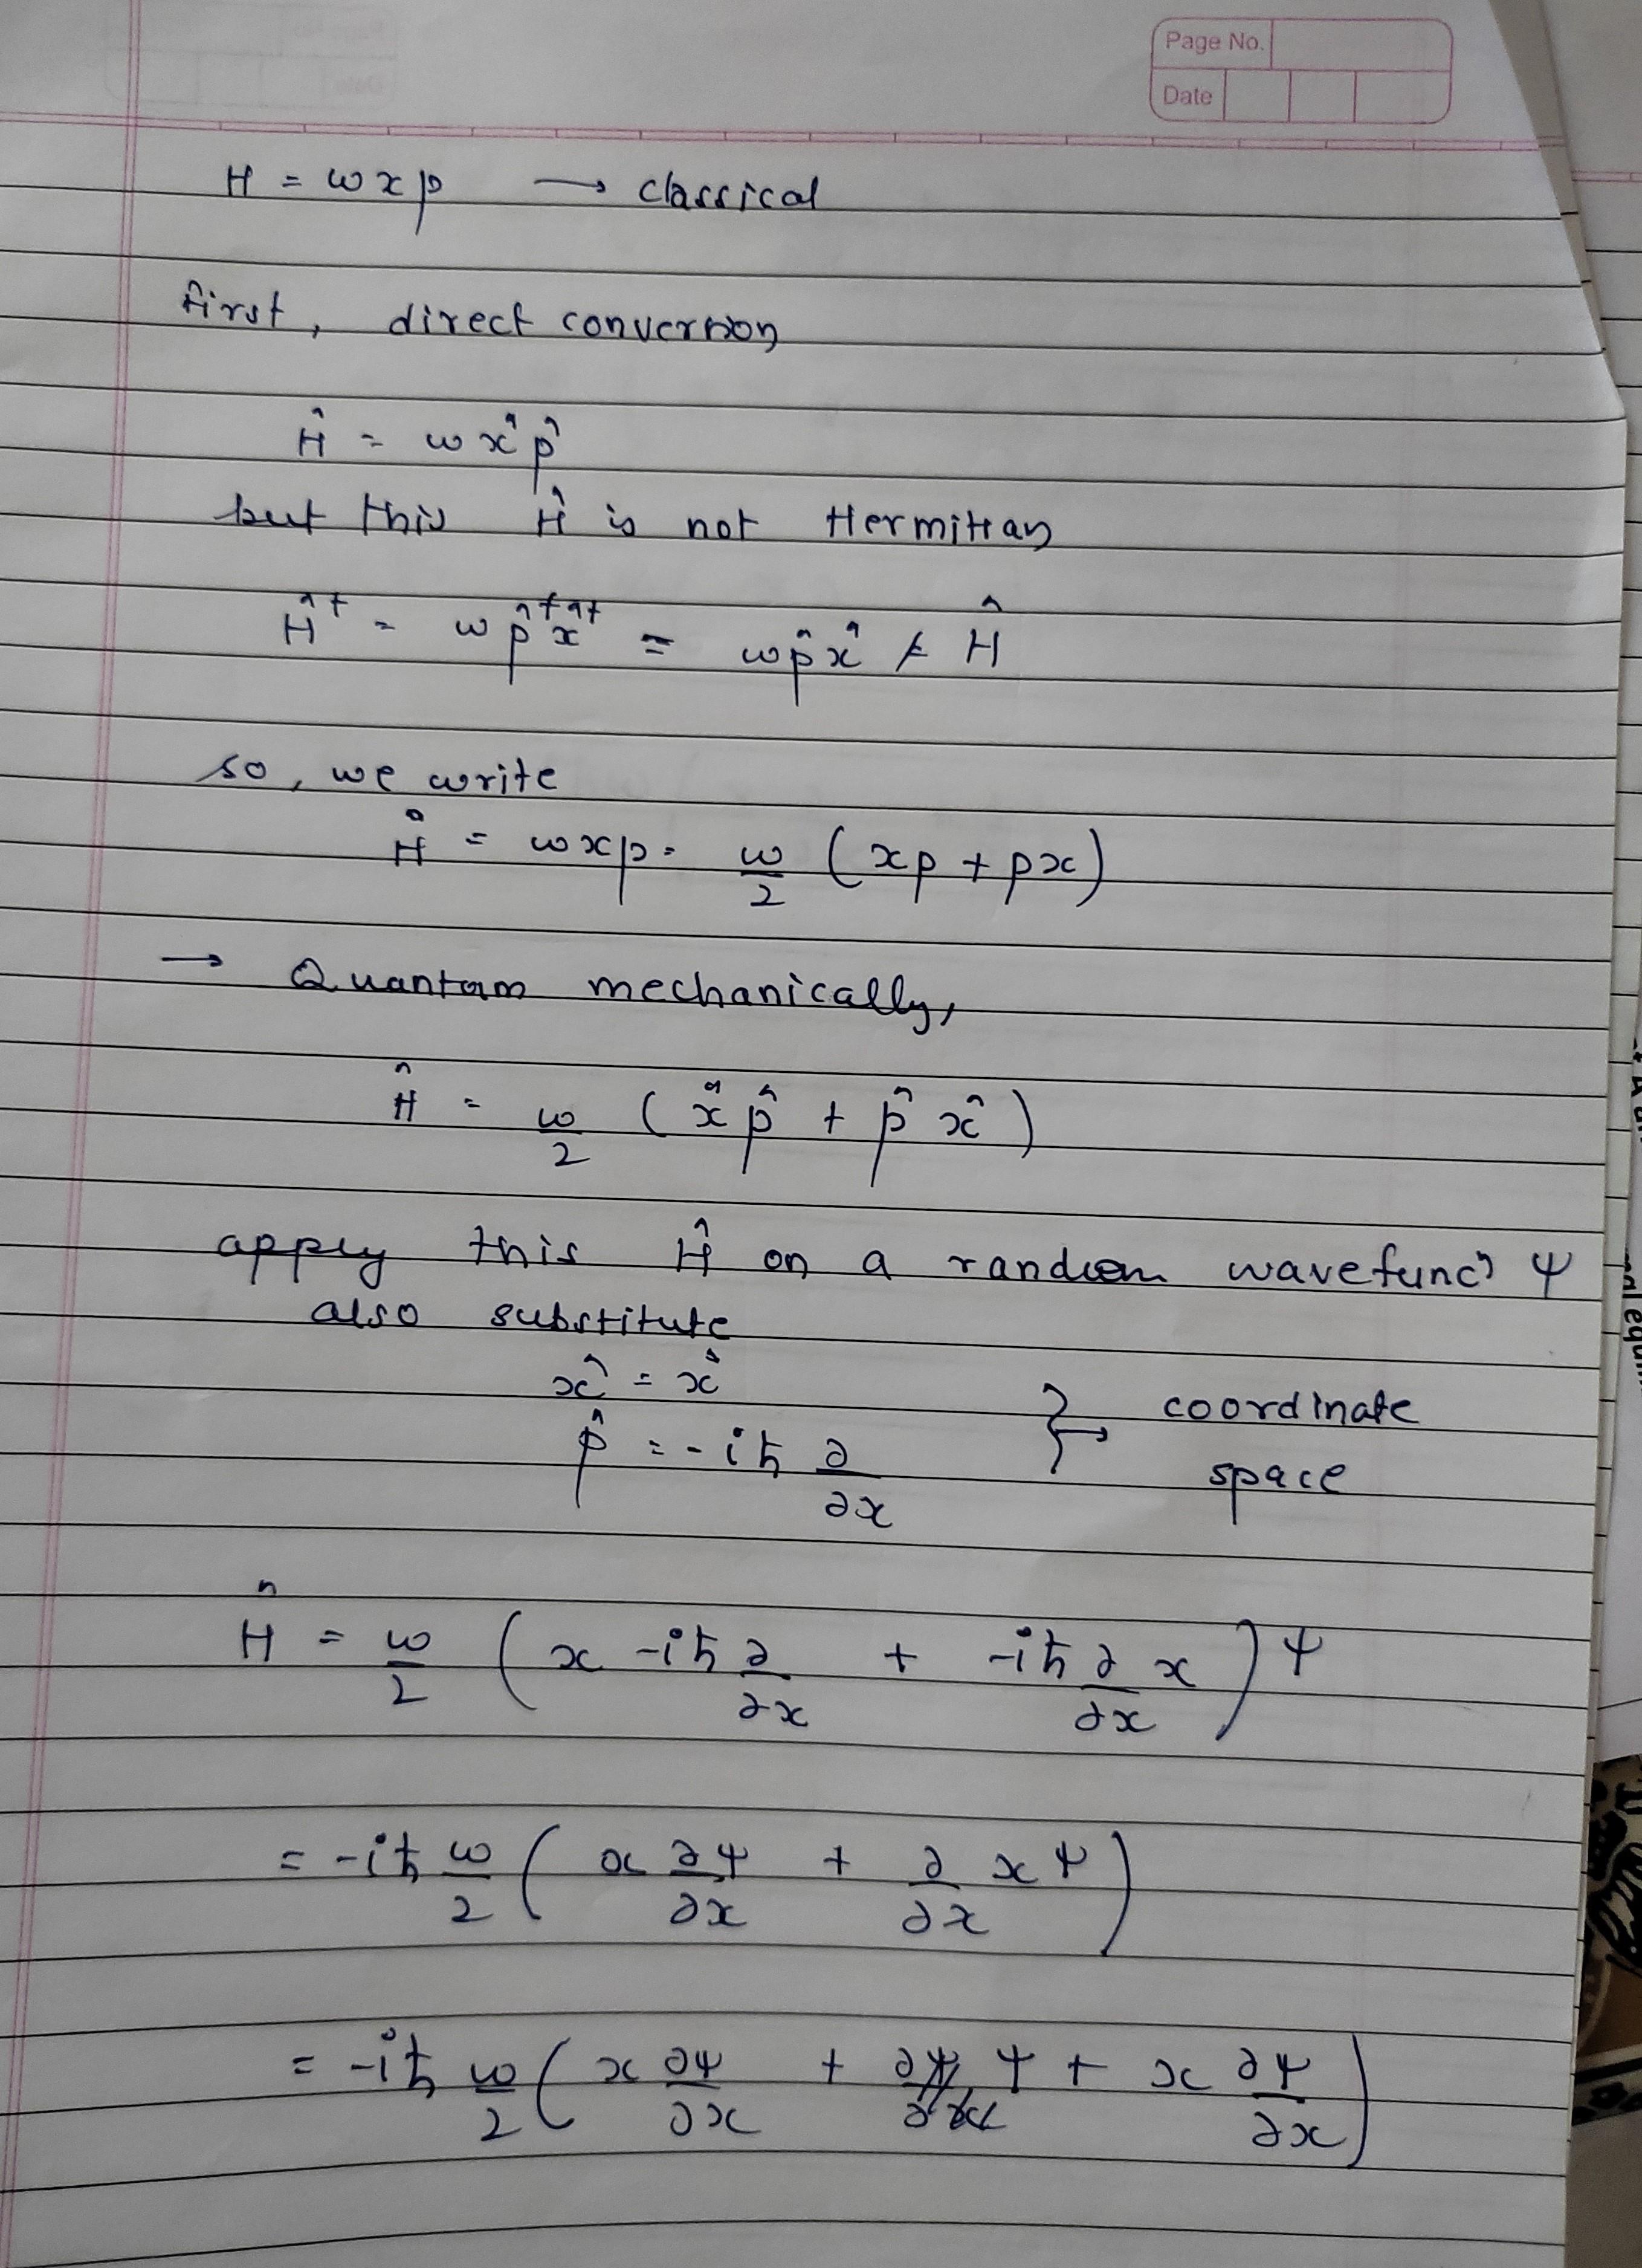 Page No.
Date
H = ωxp → classical
first, direct conversion
Ĥ = ω x̂ p̂
but this Ĥ is not Hermitian
Ĥ† = ω p̂† x̂† = ω p̂ x̂ ≠ Ĥ
so, we write
Ĥ = ωxp = ω/2 (xp + px)
→ Quantum mechanically,
Ĥ = ω/2 (x̂ p̂ + p̂ x̂)
apply this Ĥ on a random wavefuncⁿ Ψ
also substitute
x̂ = x̂
p̂ = -iħ ∂/∂x } → coordinate space
Ĥ = ω/2 (x -iħ ∂/∂x + -iħ ∂/∂x x) Ψ
= -iħ ω/2 (x ∂Ψ/∂x + ∂/∂x xΨ)
= -iħ ω/2 (x ∂Ψ/∂x + Ψ + x ∂Ψ/∂x)